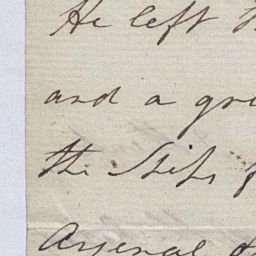 He left
and a gre
the Ships
Arsenal of